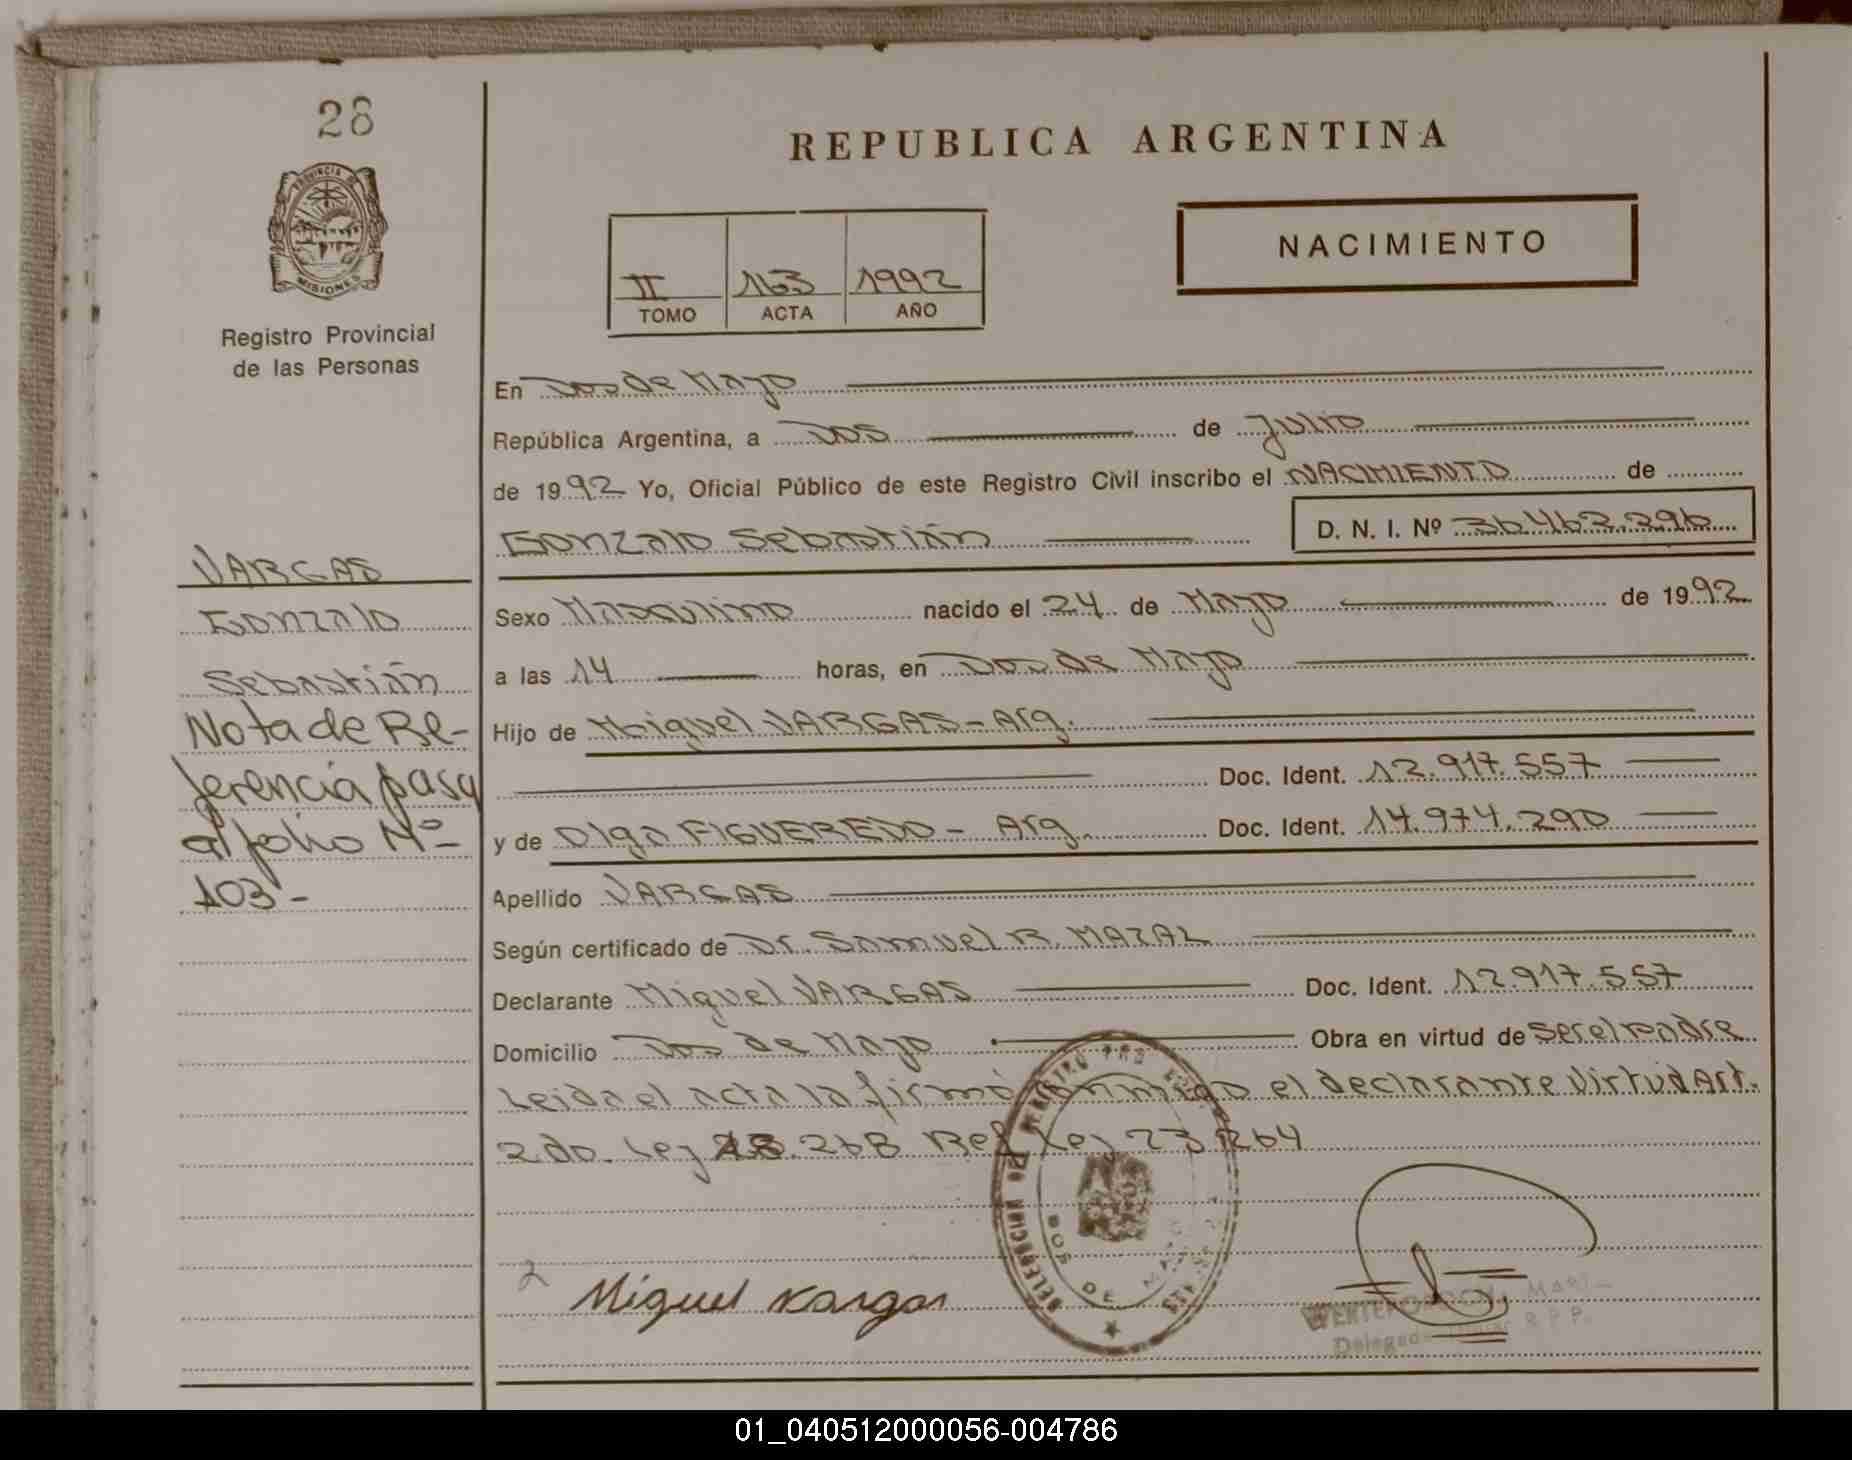 28
PROVINCIA DE
MISIONES
Registro Provincial
de las Personas
REPUBLICA ARGENTINA
NACIMIENTO
II 163 1992
TOMO ACTA AÑO
En Dos de Mayo
República Argentina, a Dos de Julio
de 1992 Yo, Oficial Público de este Registro Civil inscribo el NACIMIENTO de
Gonzalo Sebastián D. N. I. Nº 36.462.296
VARGAS
Gonzalo
Sebastián
Nota de Re-
ferencia pasa
al folio Nº
103-
Sexo Masculino nacido el 24 de Mayo de 1992
a las 14 horas, en Dos de Mayo
Hijo de Miguel VARGAS - Arg.
Doc. Ident. 12.917.557
y de Olga FIGUEREDO - Arg. Doc. Ident. 14.974.290
Apellido VARGAS
Según certificado de Dr. Samuel R. MAZAL
Declarante Miguel VARGAS Doc. Ident. 12.917.557
Domicilio Dos de Mayo Obra en virtud de ser el padre
Leida el acta la firmó conmigo el declarante Virtud Art.
2do. Ley 18.268 Ref Ley 23.264
DELEGACION DEL REGISTRO PRO
DOS DE MAYO
Miguel Vargas
Delegado R.P.P.
01_040512000056-004786